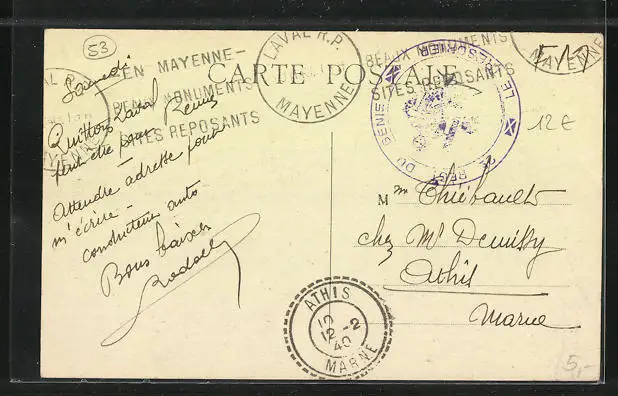 53
LAVAL R.P.
MAYENNE
EN MAYENNE-
BEAUX MONUMENTS
SITES REPOSANTS
BEAUX MONUMENTS
SITES REPOSANTS
MAYENNE
CARTE POSTALE
F.M
12 €
DU GENIE
LE
REGT
Samedi
Quittons Laval
peut être pour Rennes
Attendre adresse pour
m'écrire -
conducteur auto
Bons baisers
M me Thiébault
chez Mr
Athis
Marne
ATHIS
10
12 - 2
40
MARNE
5,-